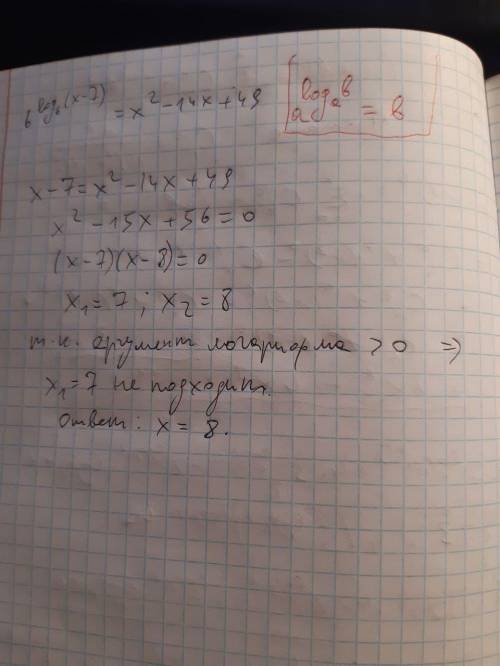 6^log₆(x-7) = x² - 14x + 49
a^logₐb = b
x - 7 = x² - 14x + 49
x² - 15x + 56 = 0
(x-7)(x-8) = 0
x₁ = 7 ; x₂ = 8
т.к. аргумент логарифма > 0 ⇒
x₁ = 7 не подходит.
Ответ: x = 8.